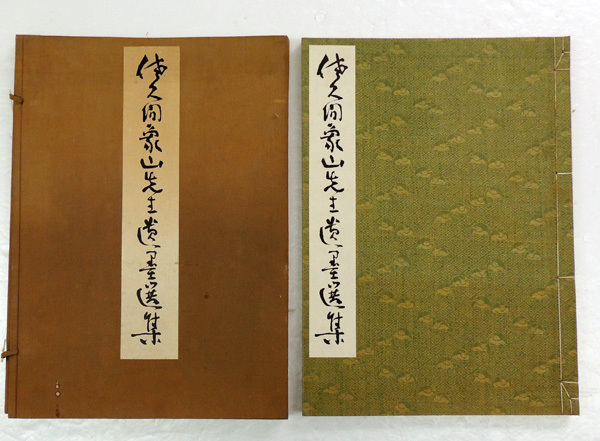 佐久間象山先生遺墨選集
佐久間象山先生遺墨選集